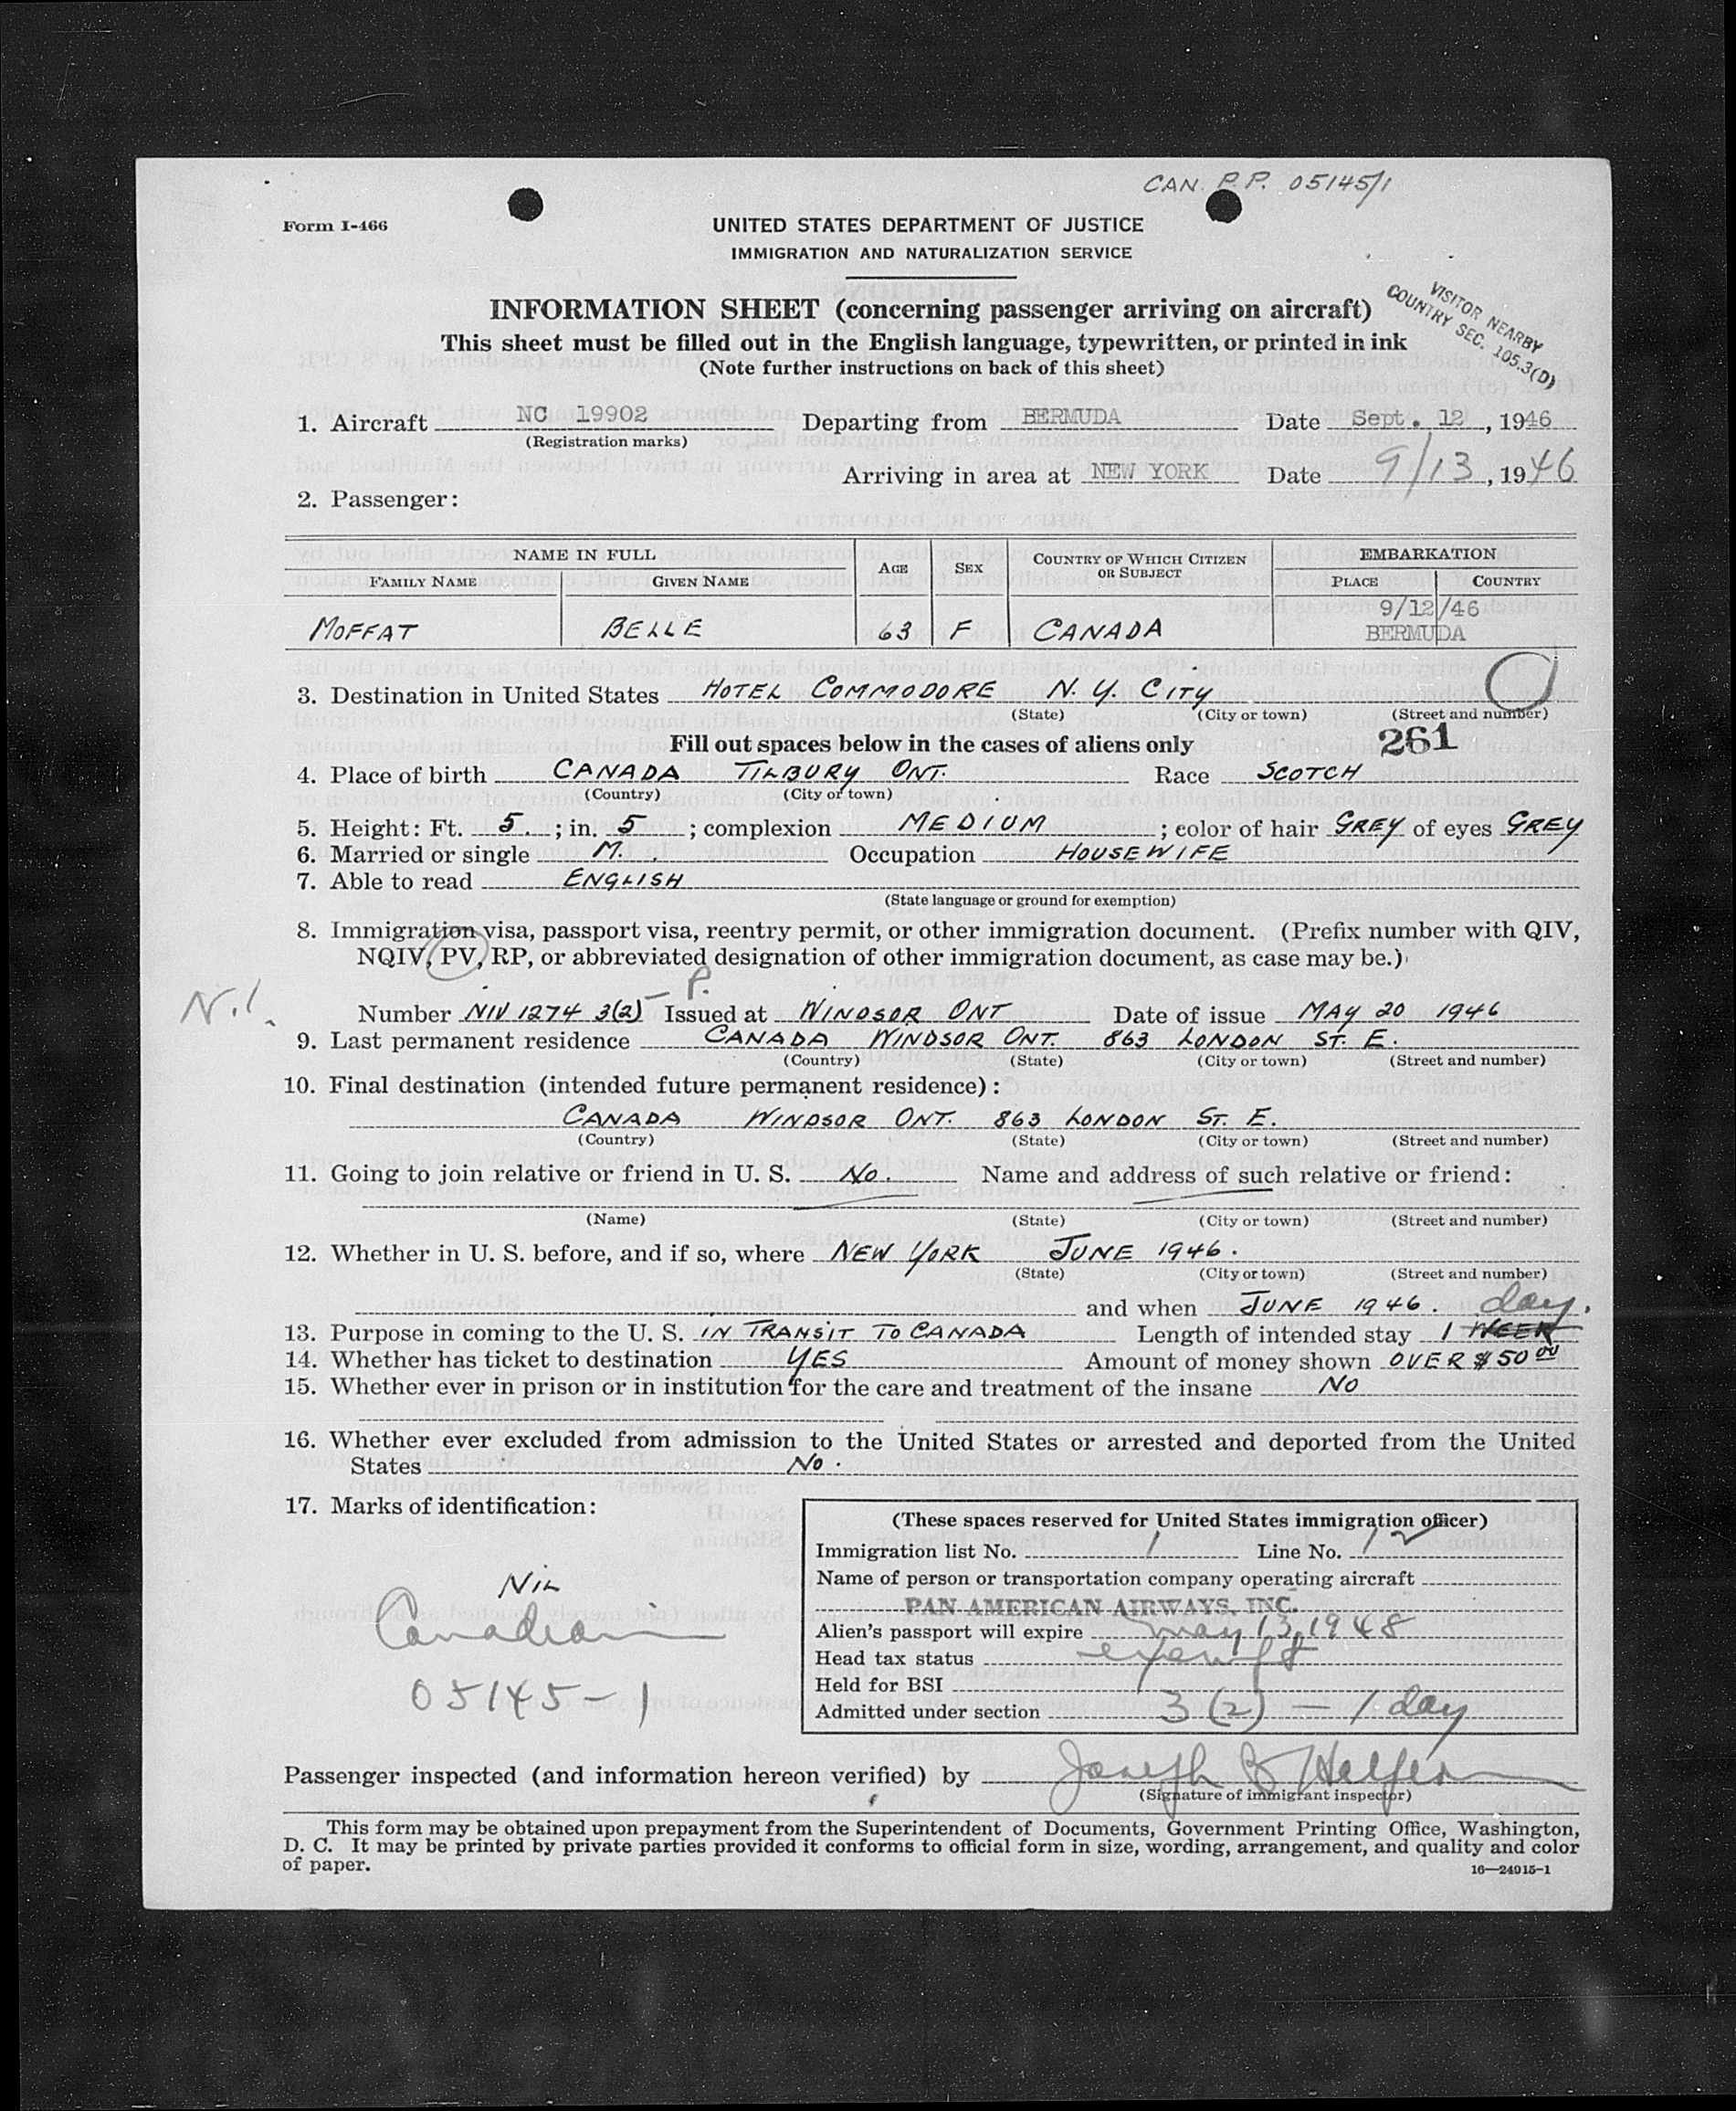 CAN. P.P. 05145/1
Form I-466
UNITED STATES DEPARTMENT OF JUSTICE
IMMIGRATION AND NATURALIZATION SERVICE
INFORMATION SHEET (concerning passenger arriving on aircraft)
VISITOR NEARBY
COUNTRY SEC. 105.3(D)
This sheet must be filled out in the English language, typewritten, or printed in ink
(Note further instructions on back of this sheet)
1. Aircraft NC 19902 Departing from BERMUDA Date Sept. 12, 1946
(Registration marks)
Arriving in area at NEW YORK Date 9/13, 1946
2. Passenger:
NAME IN FULL AGE SEX COUNTRY OF WHICH CITIZEN OR SUBJECT EMBARKATION
FAMILY NAME GIVEN NAME PLACE COUNTRY
9/12/46
MOFFAT BELLE 63 F CANADA BERMUDA
3. Destination in United States HOTEL COMMODORE N. Y. CITY
(State) (City or town) (Street and number)
Fill out spaces below in the cases of aliens only 261
4. Place of birth CANADA TILBURY ONT. Race SCOTCH
(Country) (City or town)
5. Height: Ft. 5. ; in. 5 ; complexion MEDIUM ; color of hair GREY of eyes GREY
6. Married or single M. Occupation HOUSEWIFE
7. Able to read ENGLISH
(State language or ground for exemption)
8. Immigration visa, passport visa, reentry permit, or other immigration document. (Prefix number with QIV,
NQIV, PV, RP, or abbreviated designation of other immigration document, as case may be.)
N.I. Number NIV 1274 3(2) – P. Issued at WINDSOR ONT Date of issue MAY 20 1946
9. Last permanent residence CANADA WINDSOR ONT. 863 LONDON ST. E.
(Country) (State) (City or town) (Street and number)
10. Final destination (intended future permanent residence):
CANADA WINDSOR ONT. 863 LONDON ST. E.
(Country) (State) (City or town) (Street and number)
11. Going to join relative or friend in U. S. No. Name and address of such relative or friend:
(Name) (State) (City or town) (Street and number)
12. Whether in U. S. before, and if so, where NEW YORK JUNE 1946.
(State) (City or town) (Street and number)
and when JUNE 1946. day.
13. Purpose in coming to the U. S. IN TRANSIT TO CANADA Length of intended stay 1 WEEK
14. Whether has ticket to destination YES Amount of money shown OVER $50 00
15. Whether ever in prison or in institution for the care and treatment of the insane NO
16. Whether ever excluded from admission to the United States or arrested and deported from the United
States No.
17. Marks of identification:
NIL
Canadian
05145-1
(These spaces reserved for United States immigration officer)
Immigration list No. 1 Line No. 12
Name of person or transportation company operating aircraft
PAN AMERICAN AIRWAYS, INC.
Alien's passport will expire May 13, 1948
Head tax status exempt
Held for BSI
Admitted under section 3 (2) – 1 day
Passenger inspected (and information hereon verified) by Joseph B Halfern
(Signature of immigrant inspector)
This form may be obtained upon prepayment from the Superintendent of Documents, Government Printing Office, Washington,
D. C. It may be printed by private parties provided it conforms to official form in size, wording, arrangement, and quality and color
of paper.
16—24915-1